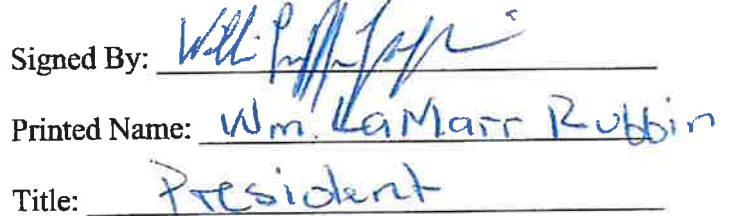 Signed By:
Printed Name: Wm. LaMarr Rubbin
Title: President